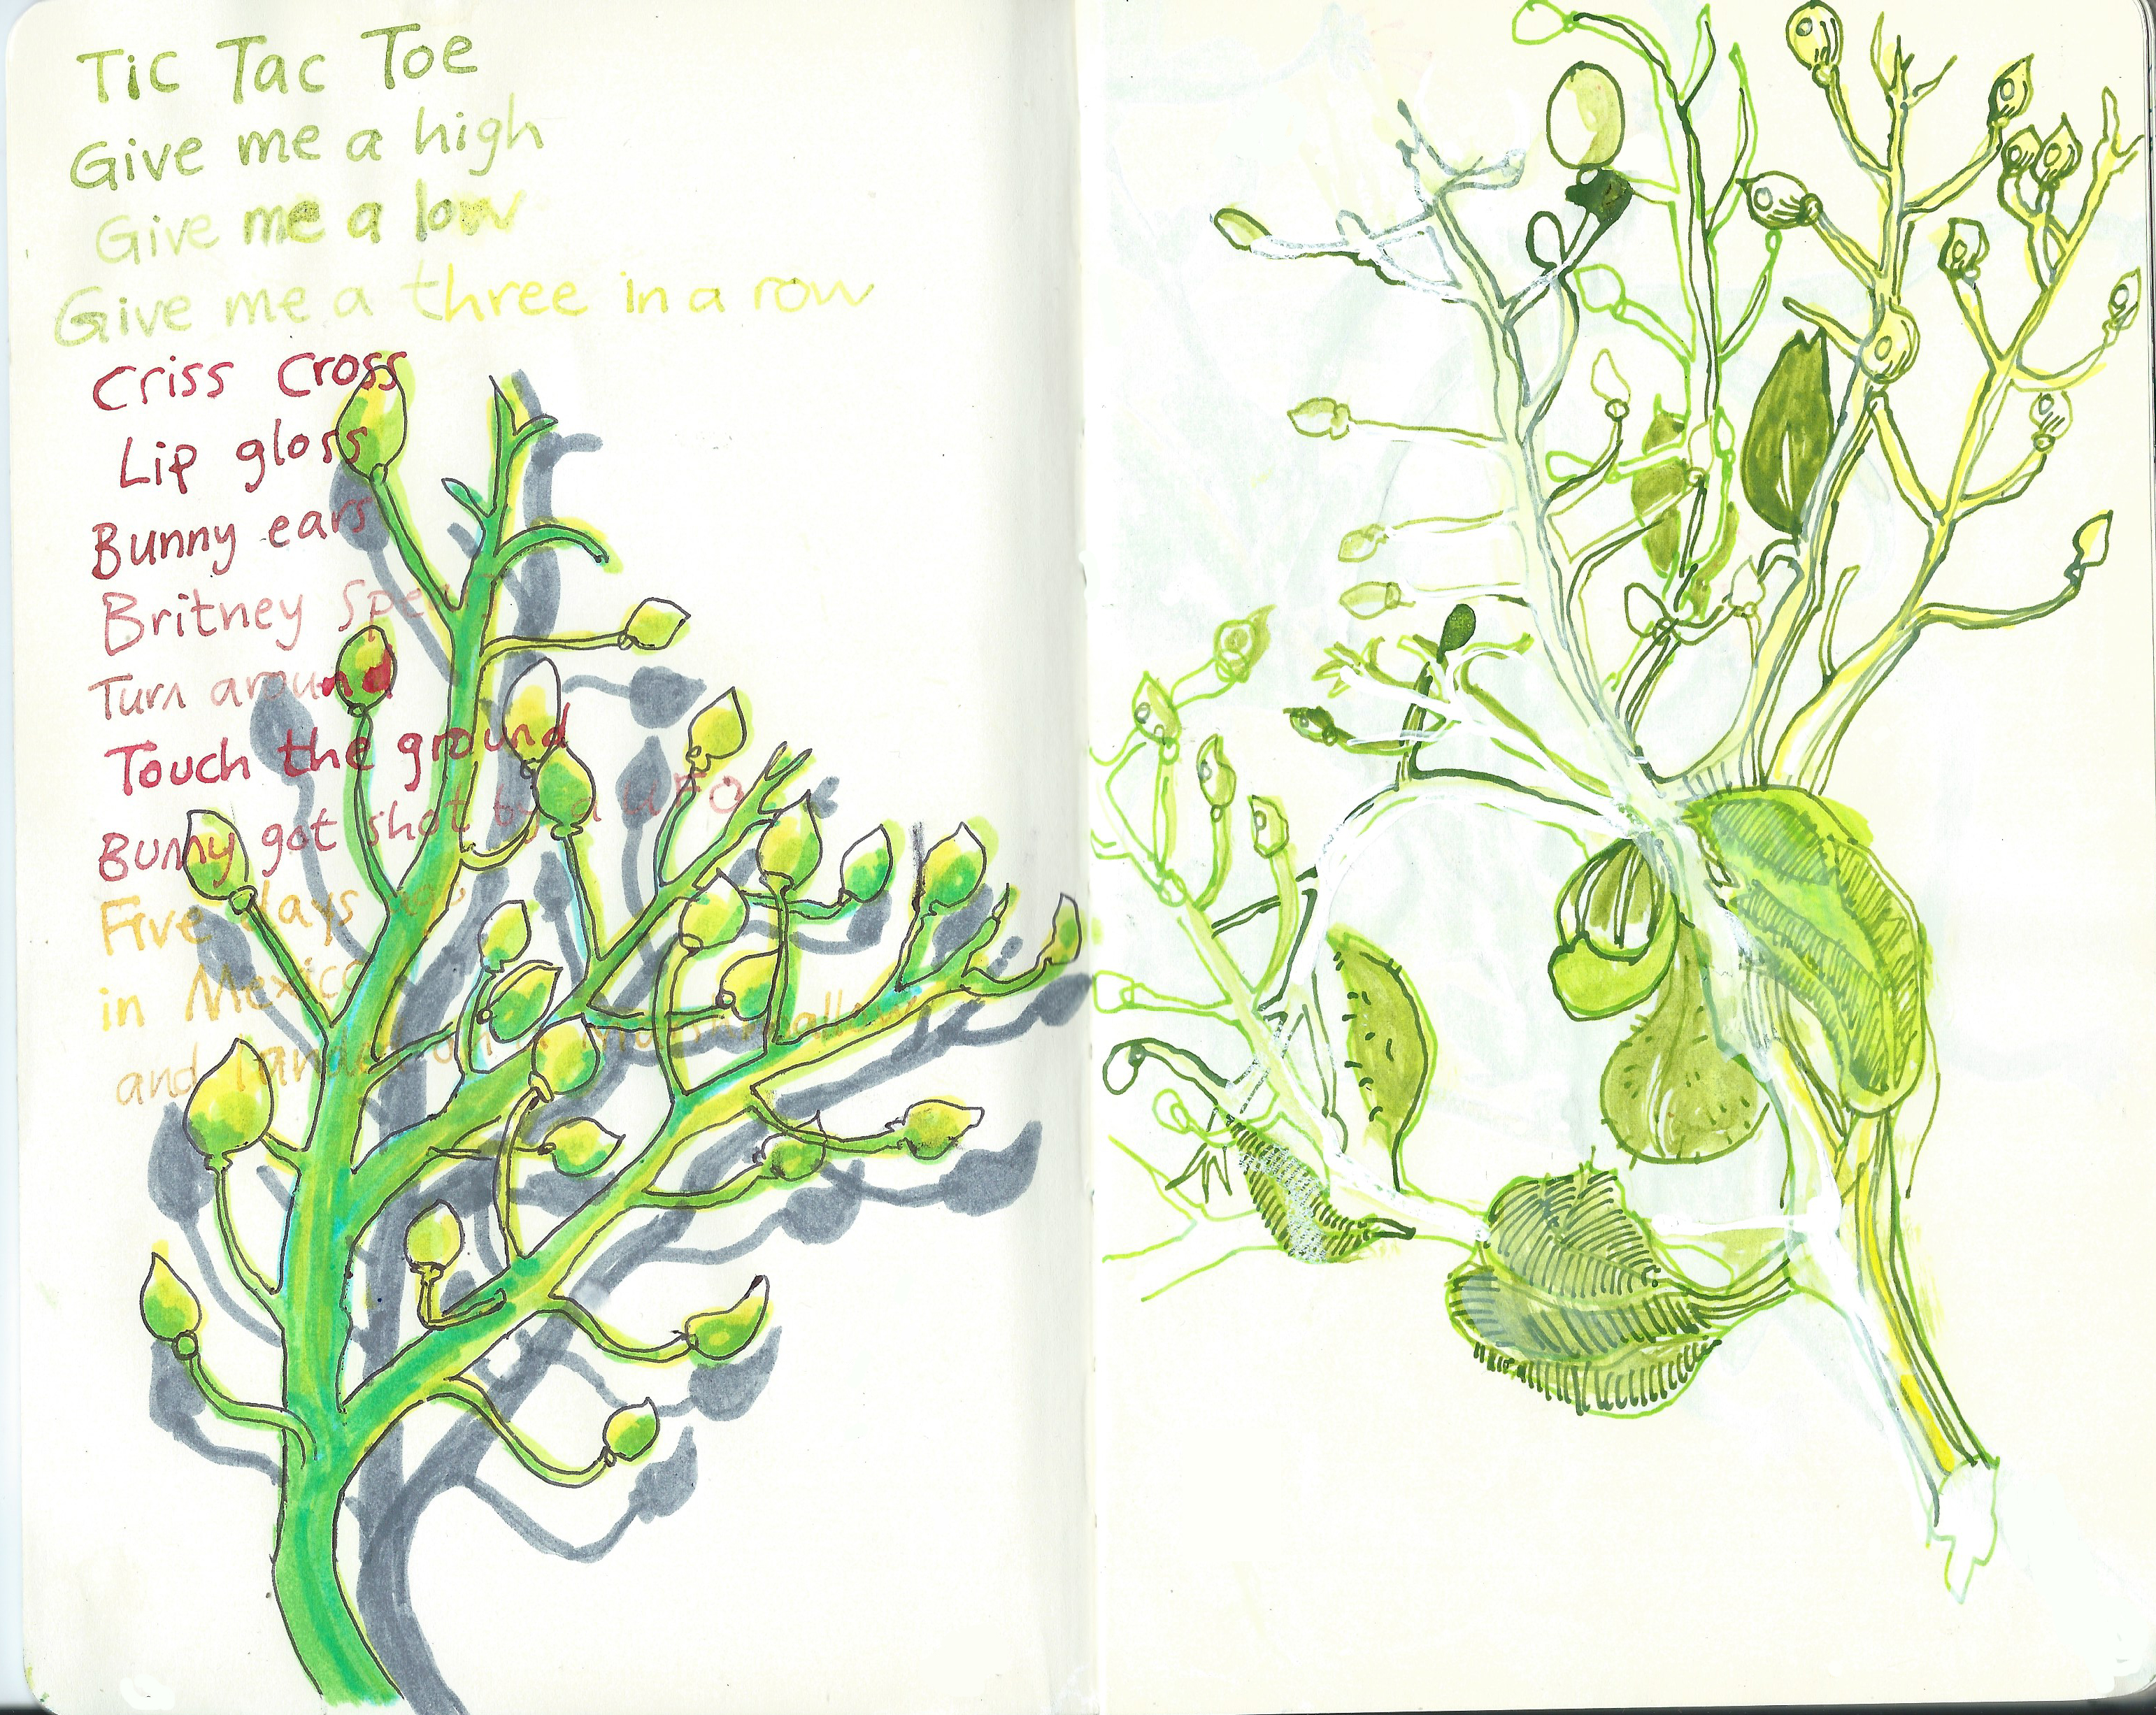 Tic Tac Toe
Give me a high
Give me a low
Give me a three in a row
Criss Cross
Lip gloss
Bunny ears
Britney Spea
Turn around
Touch the ground
Bunny got shot by a UFO
Five days ago
in Mexico
and landed on a marshmallow